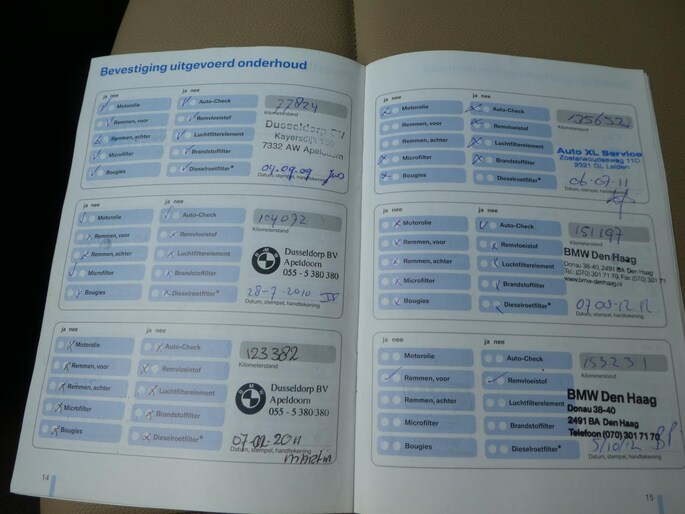 Bevestiging uitgevoerd onderhoud
ja nee ja nee
Motorolie Auto-Check 77824
Kilometerstand
Remmen, voor Remvloeistof Dusseldorp BV
Kayersdijk
Remmen, achter Luchtfilterelement 7332 AW Apeldoorn
Microfilter Brandstoffilter 04.09.09
Bougies Dieselroetfilter* Datum, stempel, handtekening
ja nee ja nee
Motorolie Auto-Check 104072
Kilometerstand
Remmen, voor Remvloeistof BMW Dusseldorp BV
Remmen, achter Luchtfilterelement Apeldoorn
Microfilter Brandstoffilter 055 - 5 380 380
Bougies Dieselroetfilter* 28-7-2010
Datum, stempel, handtekening
ja nee ja nee
Motorolie Auto-Check 123382
Kilometerstand
Remmen, voor Remvloeistof
Remmen, achter Luchtfilterelement BMW Dusseldorp BV
Apeldoorn
Microfilter Brandstoffilter 055 - 5 380 380
Bougies Dieselroetfilter* 2011
Datum, stempel, handtekening
Martin
14
ja nee ja nee
Motorolie Auto-Check
Kilometerstand
Remmen, voor Remvloeistof
Remmen, achter Luchtfilterelement Auto XL Service
Zoeterwoudseweg 11D
Microfilter Brandstoffilter 2321 GL Leiden
Bougies Dieselroetfilter* 06-07-11
Datum, stempel, handtekening
ja nee ja nee
Motorolie Auto-Check 151197
Kilometerstand
Remmen, voor Remvloeistof BMW Den Haag
Remmen, achter Luchtfilterelement Donau 38-40, 2491 BA Den Haag
Microfilter Brandstoffilter www.bmw-denhaag.nl
Bougies Dieselroetfilter*
Datum, stempel, handtekening
ja nee ja nee
Motorolie Auto-Check 153231
Kilometerstand
Remmen, voor Remvloeistof BMW Den Haag
Remmen, achter Luchtfilterelement Donau 38-40
2491 BA Den Haag
Microfilter Brandstoffilter Telefoon (070) 301 71 70
Bougies Dieselroetfilter* 5/10/12
Datum, stempel, handtekening
15